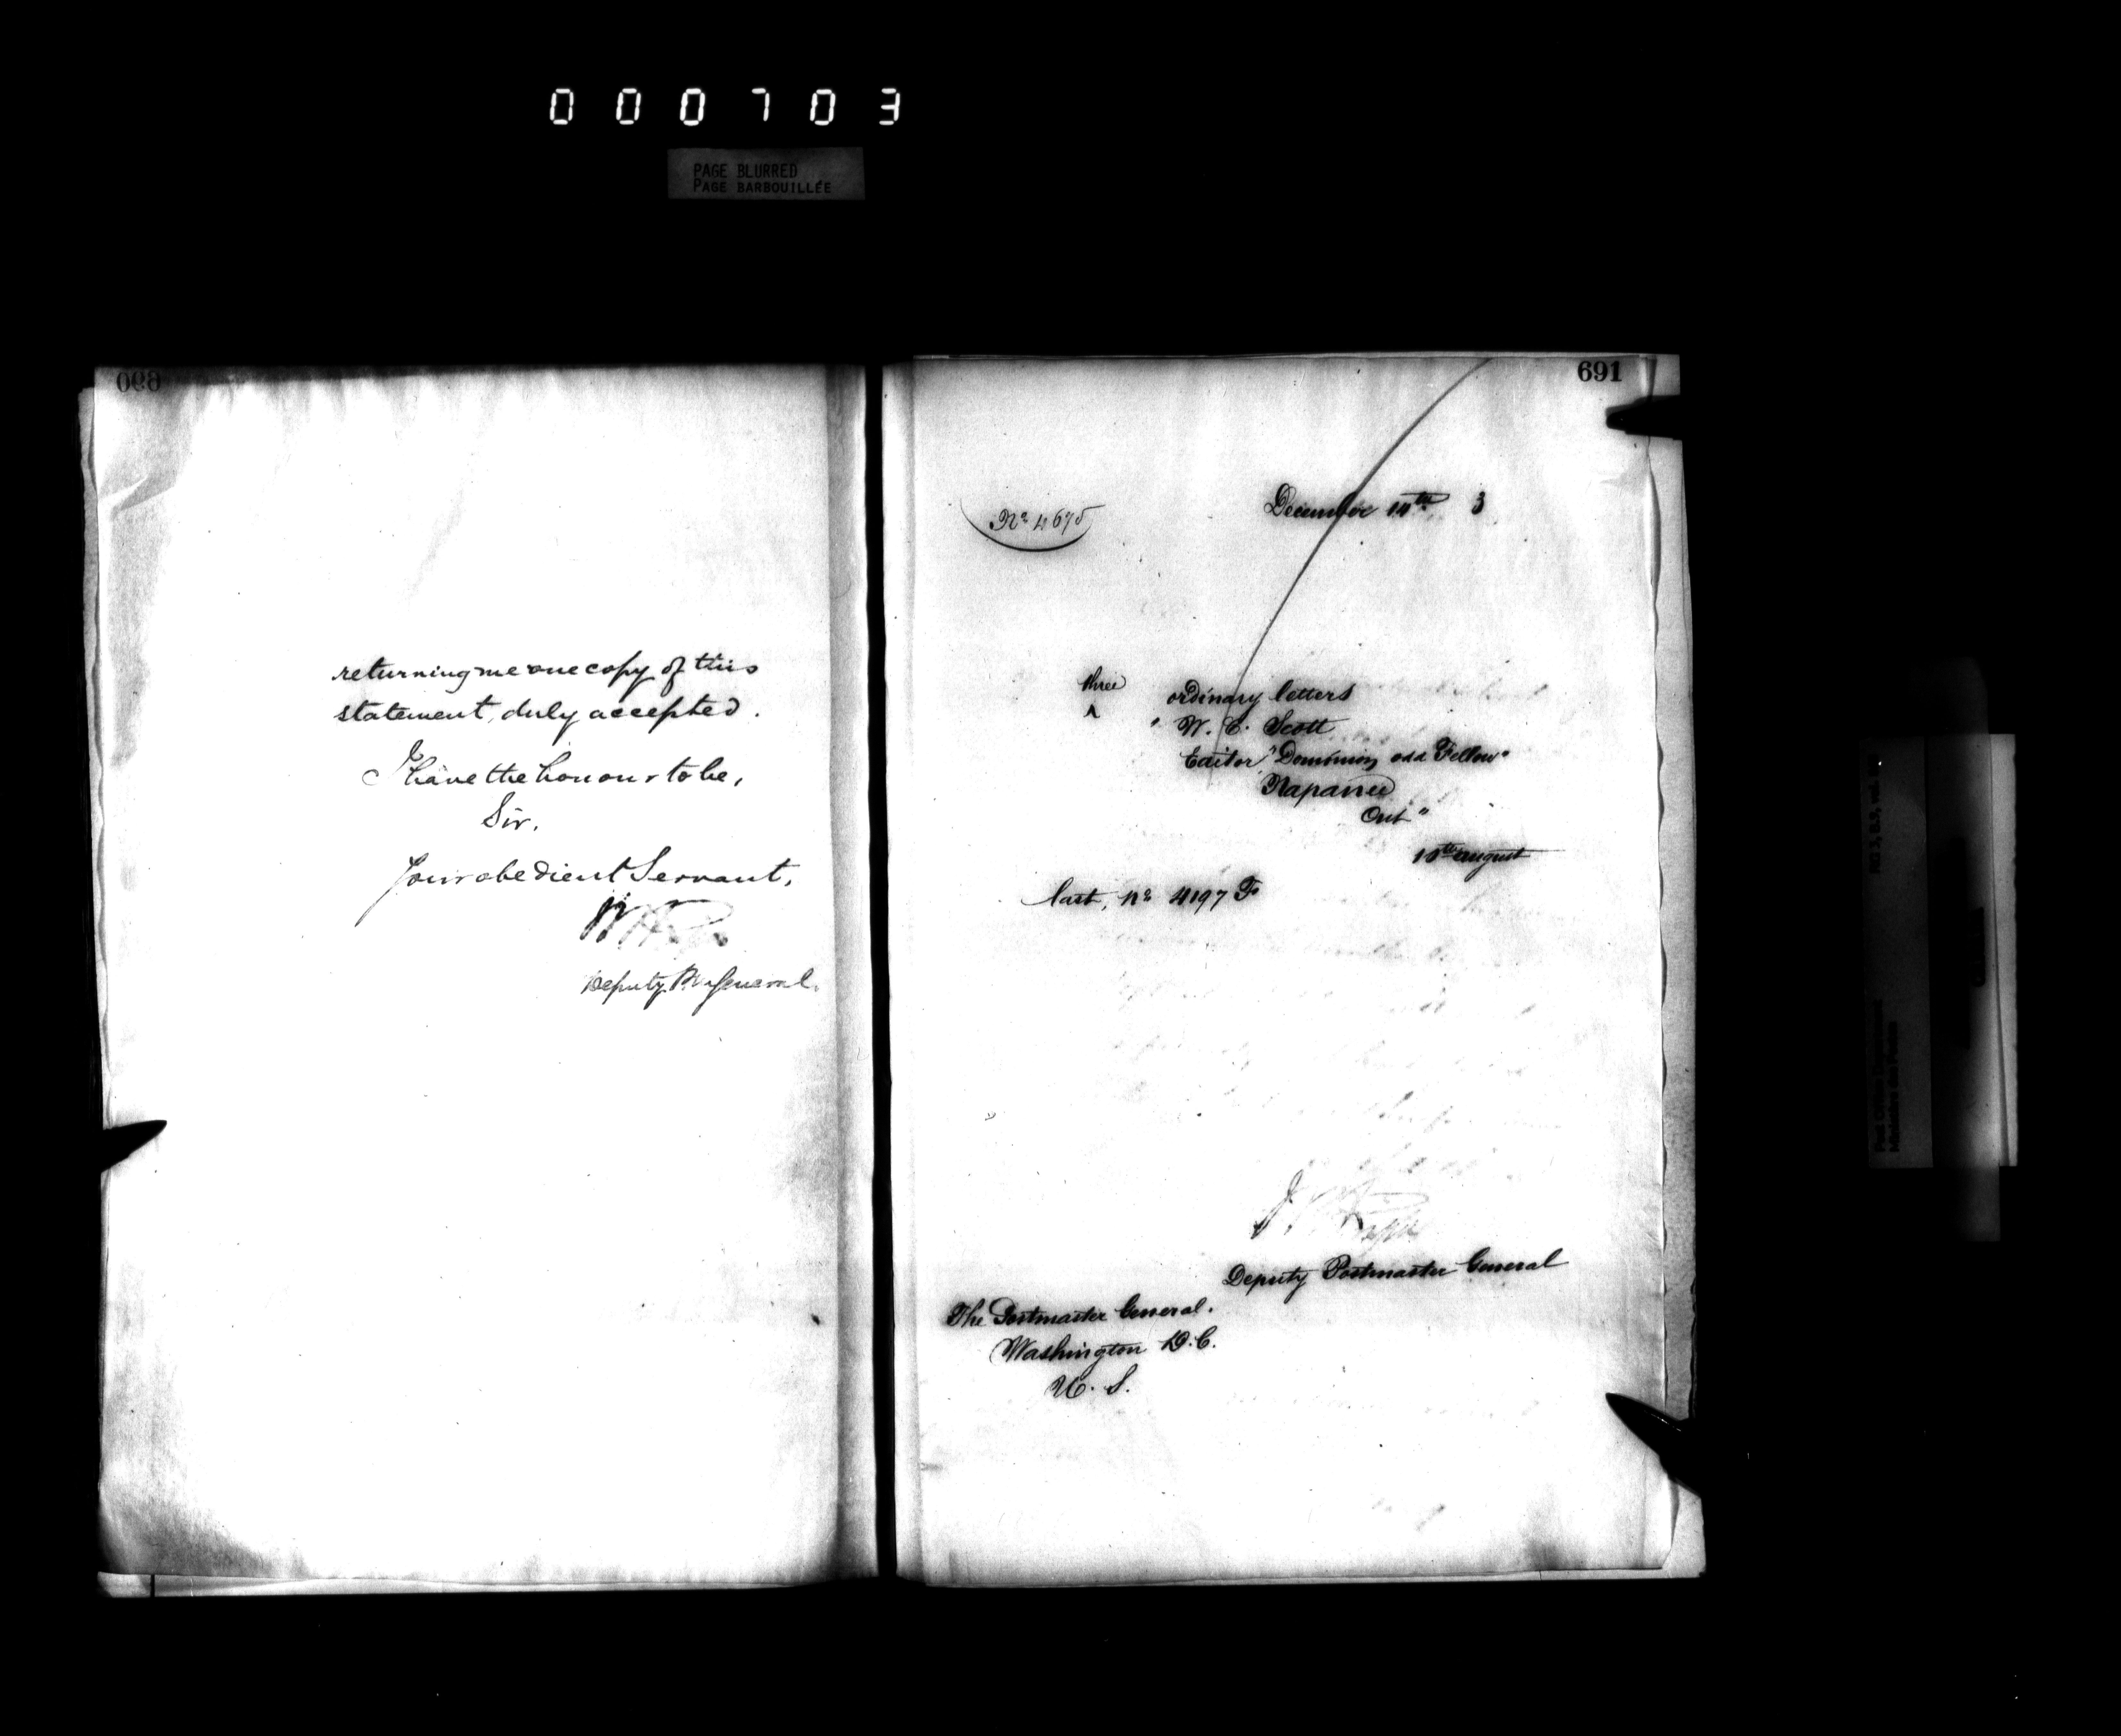 000703
PAGE BLURRED
PAGE BARBOUILLÉE
690
returning me one copy of this
statement, duly accepted.
I have the honour to be,
Sir,
Your obedient Servant,
Deputy P. M. General.
691
No 4675
December 14th 3
three
^ ordinary letters
" W. C. Scott
Editor "Dominion odd Fellow"
Napanee
Ont"
10th august
last, No 4197 F
Deputy Postmaster General
The Postmaster General.
Washington D.C.
U. S.
RG 3, B.9, vol.
Post Office Department
Ministère des Postes